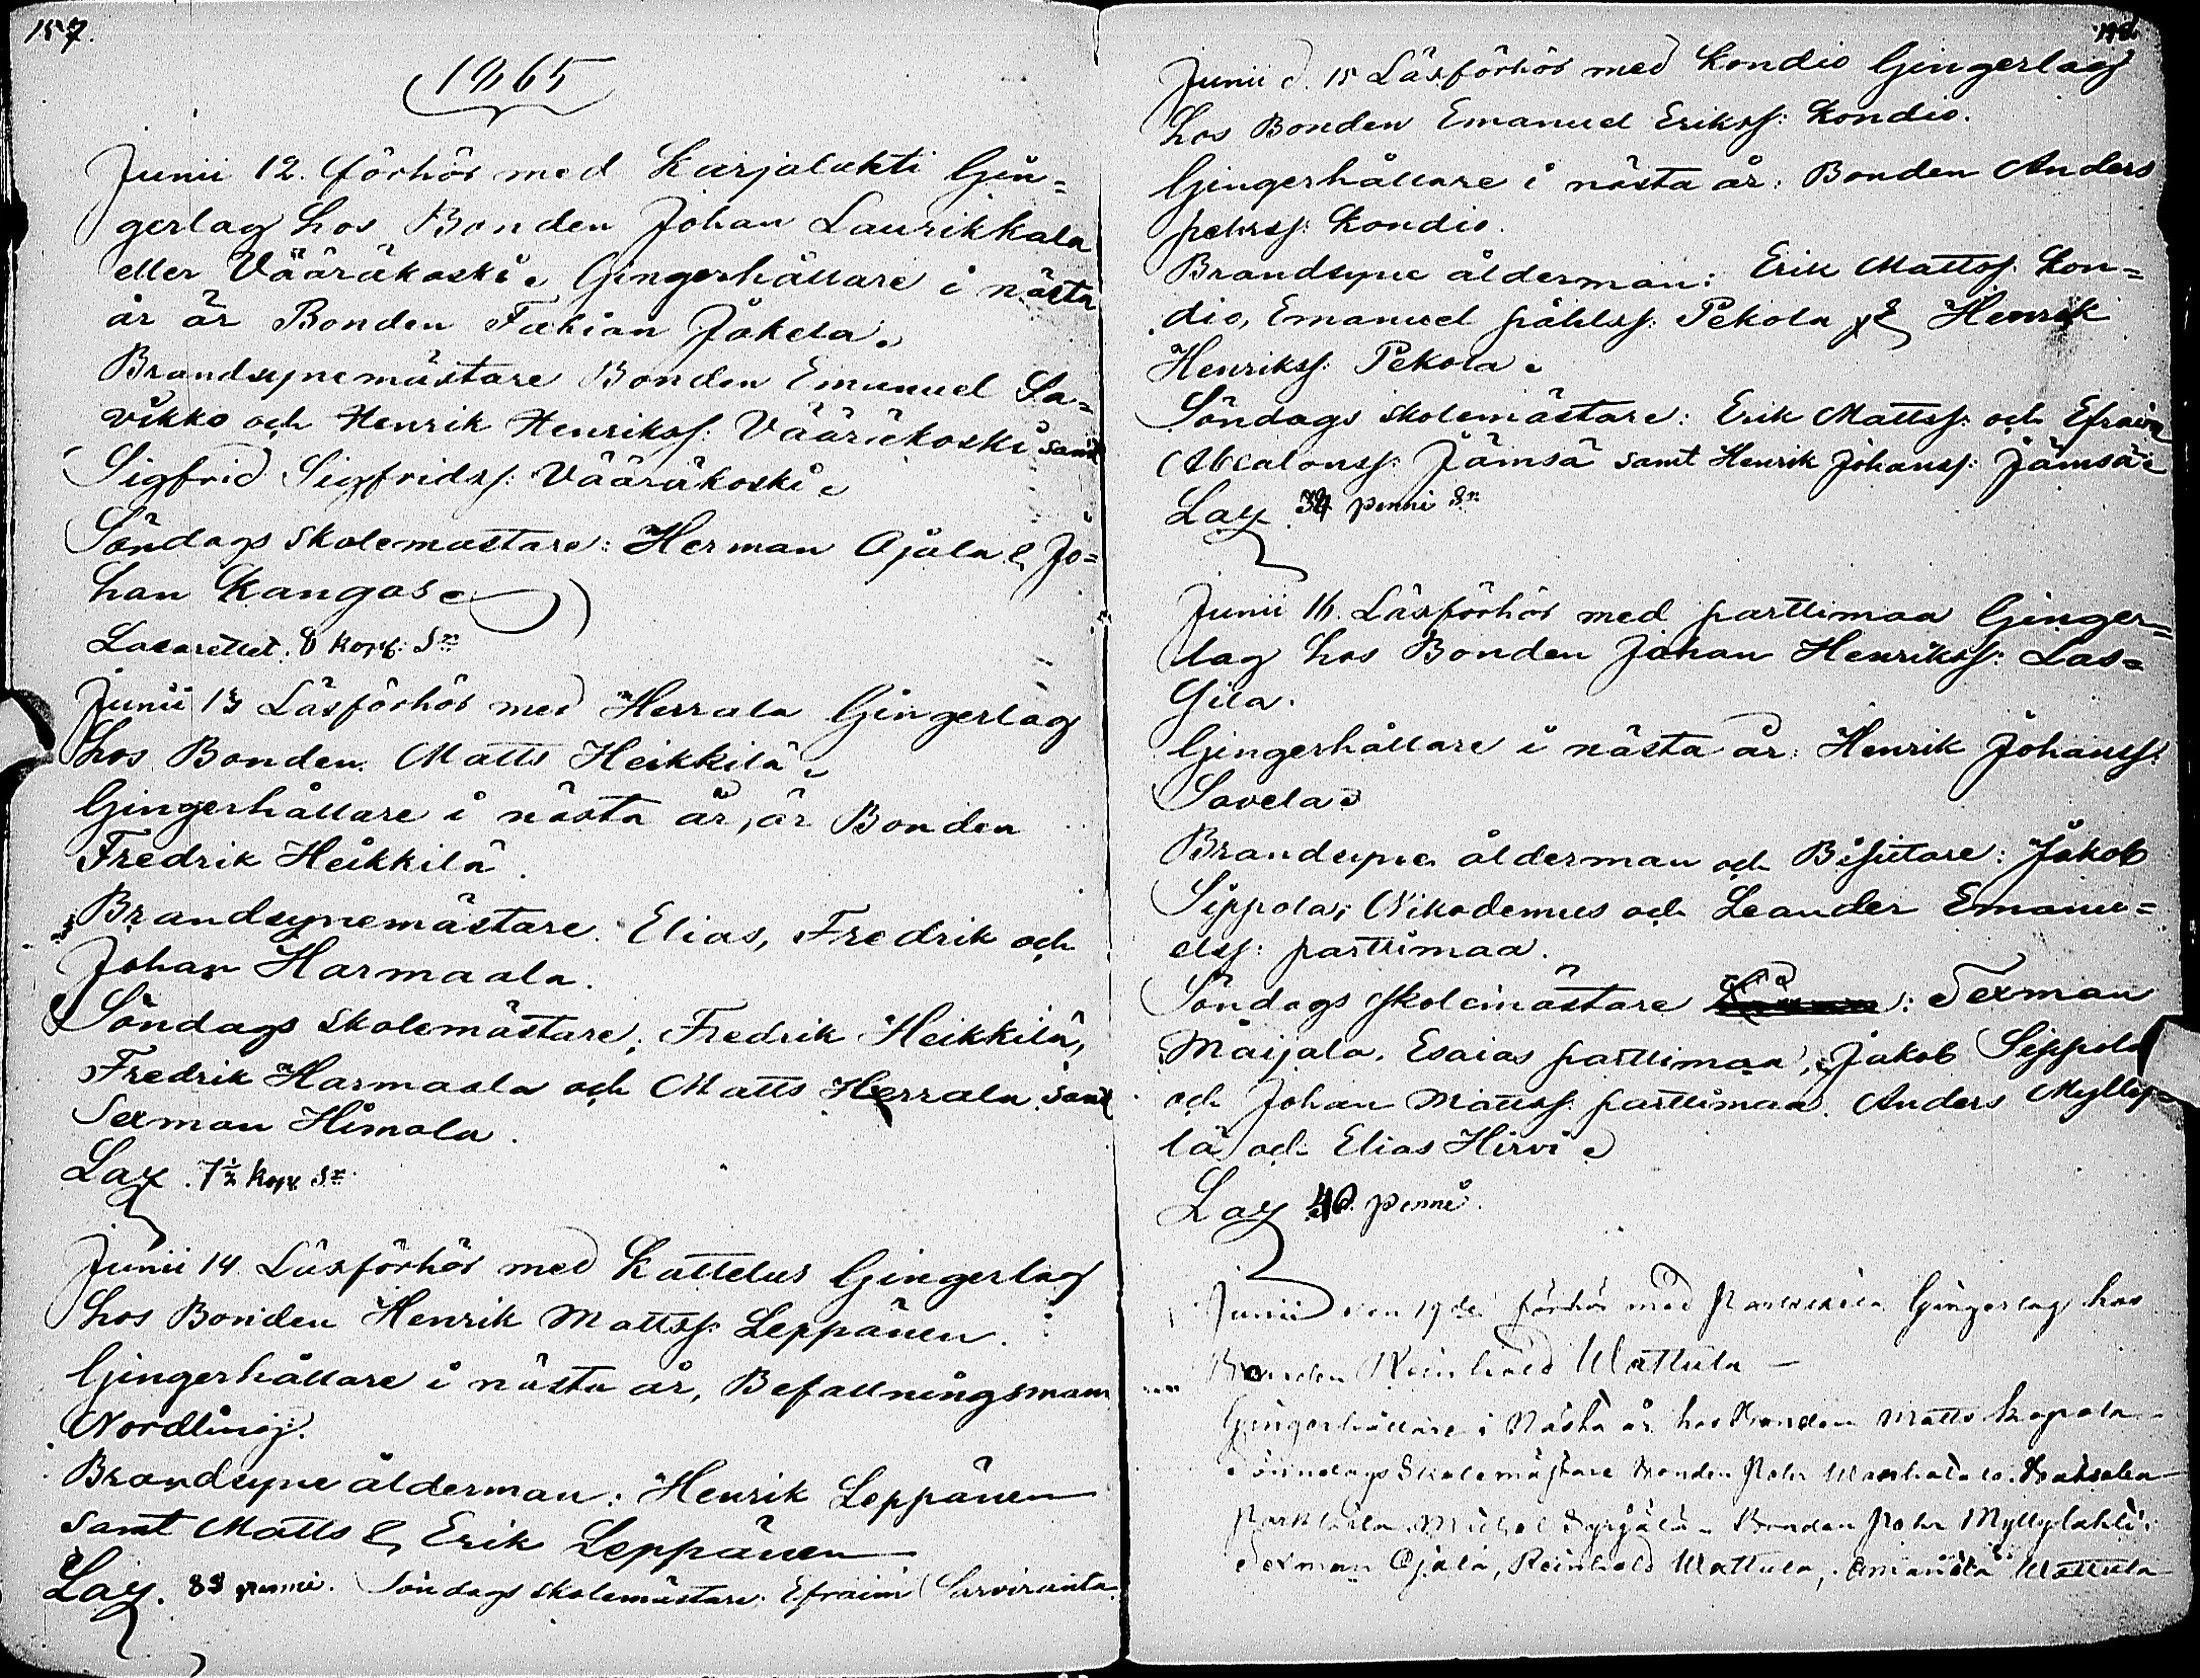 157.
1865
Junii 12. förhör med Karjalahti Gin=
gerlag hos Bonden Johan Laurikkala
eller Vääräkoski. Gingerhållare i nästa
år är Bonden Fabian Jåkela.
Brandsynemästare Bonden Emanuel Sa=
vikko och Henrik Henrikss: Vääräkoski samt
Sigfrid Sigfridss: Vääräkoski.
Söndags skolemästare: Herman Ojala & Jo=
han Kangas.
Lasarettet. 8 kop: Sr
Junii 13 Läsförhör med Herrala Gingerlag
hos Bonden Matts Heikkilä.
Gingerhållare i nästa år, är Bonden
Fredrik Heikkilä.
Brandsynemästare. Elias, Fredrik och
Johan Harmaala.
Söndags skolemästare: Fredrik Heikkilä,
Fredrik Harmaala och Matts Herrala samt
Sexman Himola.
Laz. 7½ kop Sr
Junii 14. Läsförhör med Kattelus Gingerlag
hos Bonden Henrik Mattss: Leppänen.
Gingerhållare i nästa år, Befallningsman
Nordling.
Brandsyne ålderman: Henrik Leppänen
samt Matts & Erik Leppänen
Laz. 83 penni. Söndags skolemästare: Efraim Sarviranta.
Junii d. 15 Läsförhör med Kondio Gingerlag
hos Bonden Emanuel Erikss: Kondio.
Gingerhållare i nästa år: Bonden Anders
Pehrss: Kondio.
Brandsyne ålderman: Erik Mattss: Kon=
dio, Emanuel Påhlss: Pekola & Henrik
Henrikss: Pekola.
Söndags skolemästare: Erik Mattss: och Efraim
Abcalonss: Jämsä samt Henrik Johanss: Jämsä.
Laz. 34 penni Sr
Junii 16. Läsförhör med Parttimaa Ginger=
lag hos Bonden Johan Henrikss: Las=
sila.
Gingerhållare i nästa år: Henrik Johanss:
Savela.
Brandsyne ålderman och Bisittare: Jakob
Sippola, Nikodemus och Leander Emanu=
elss: Parttimaa.
Söndags skolemästare: Sexman
Maijala. Esaias Parttimaa, Jakob Sippola
och Johan Mattss: Parttimaa. Anders Mylly=
lä och Elias Hirvi.
Laz 40 penni.
Junii den 19de förhör med Gingerlag hos
Bonden Reinhold Wattula —
Gingerhållare i Nästa år hos Bonden Matts Kopola
Sönndags Skolemästare Bonden Pehr
Michel Syrjälä Bonden Pehr Myllylahti
Sexman Ojala, Reinhold Wattula, Amanda Wattula